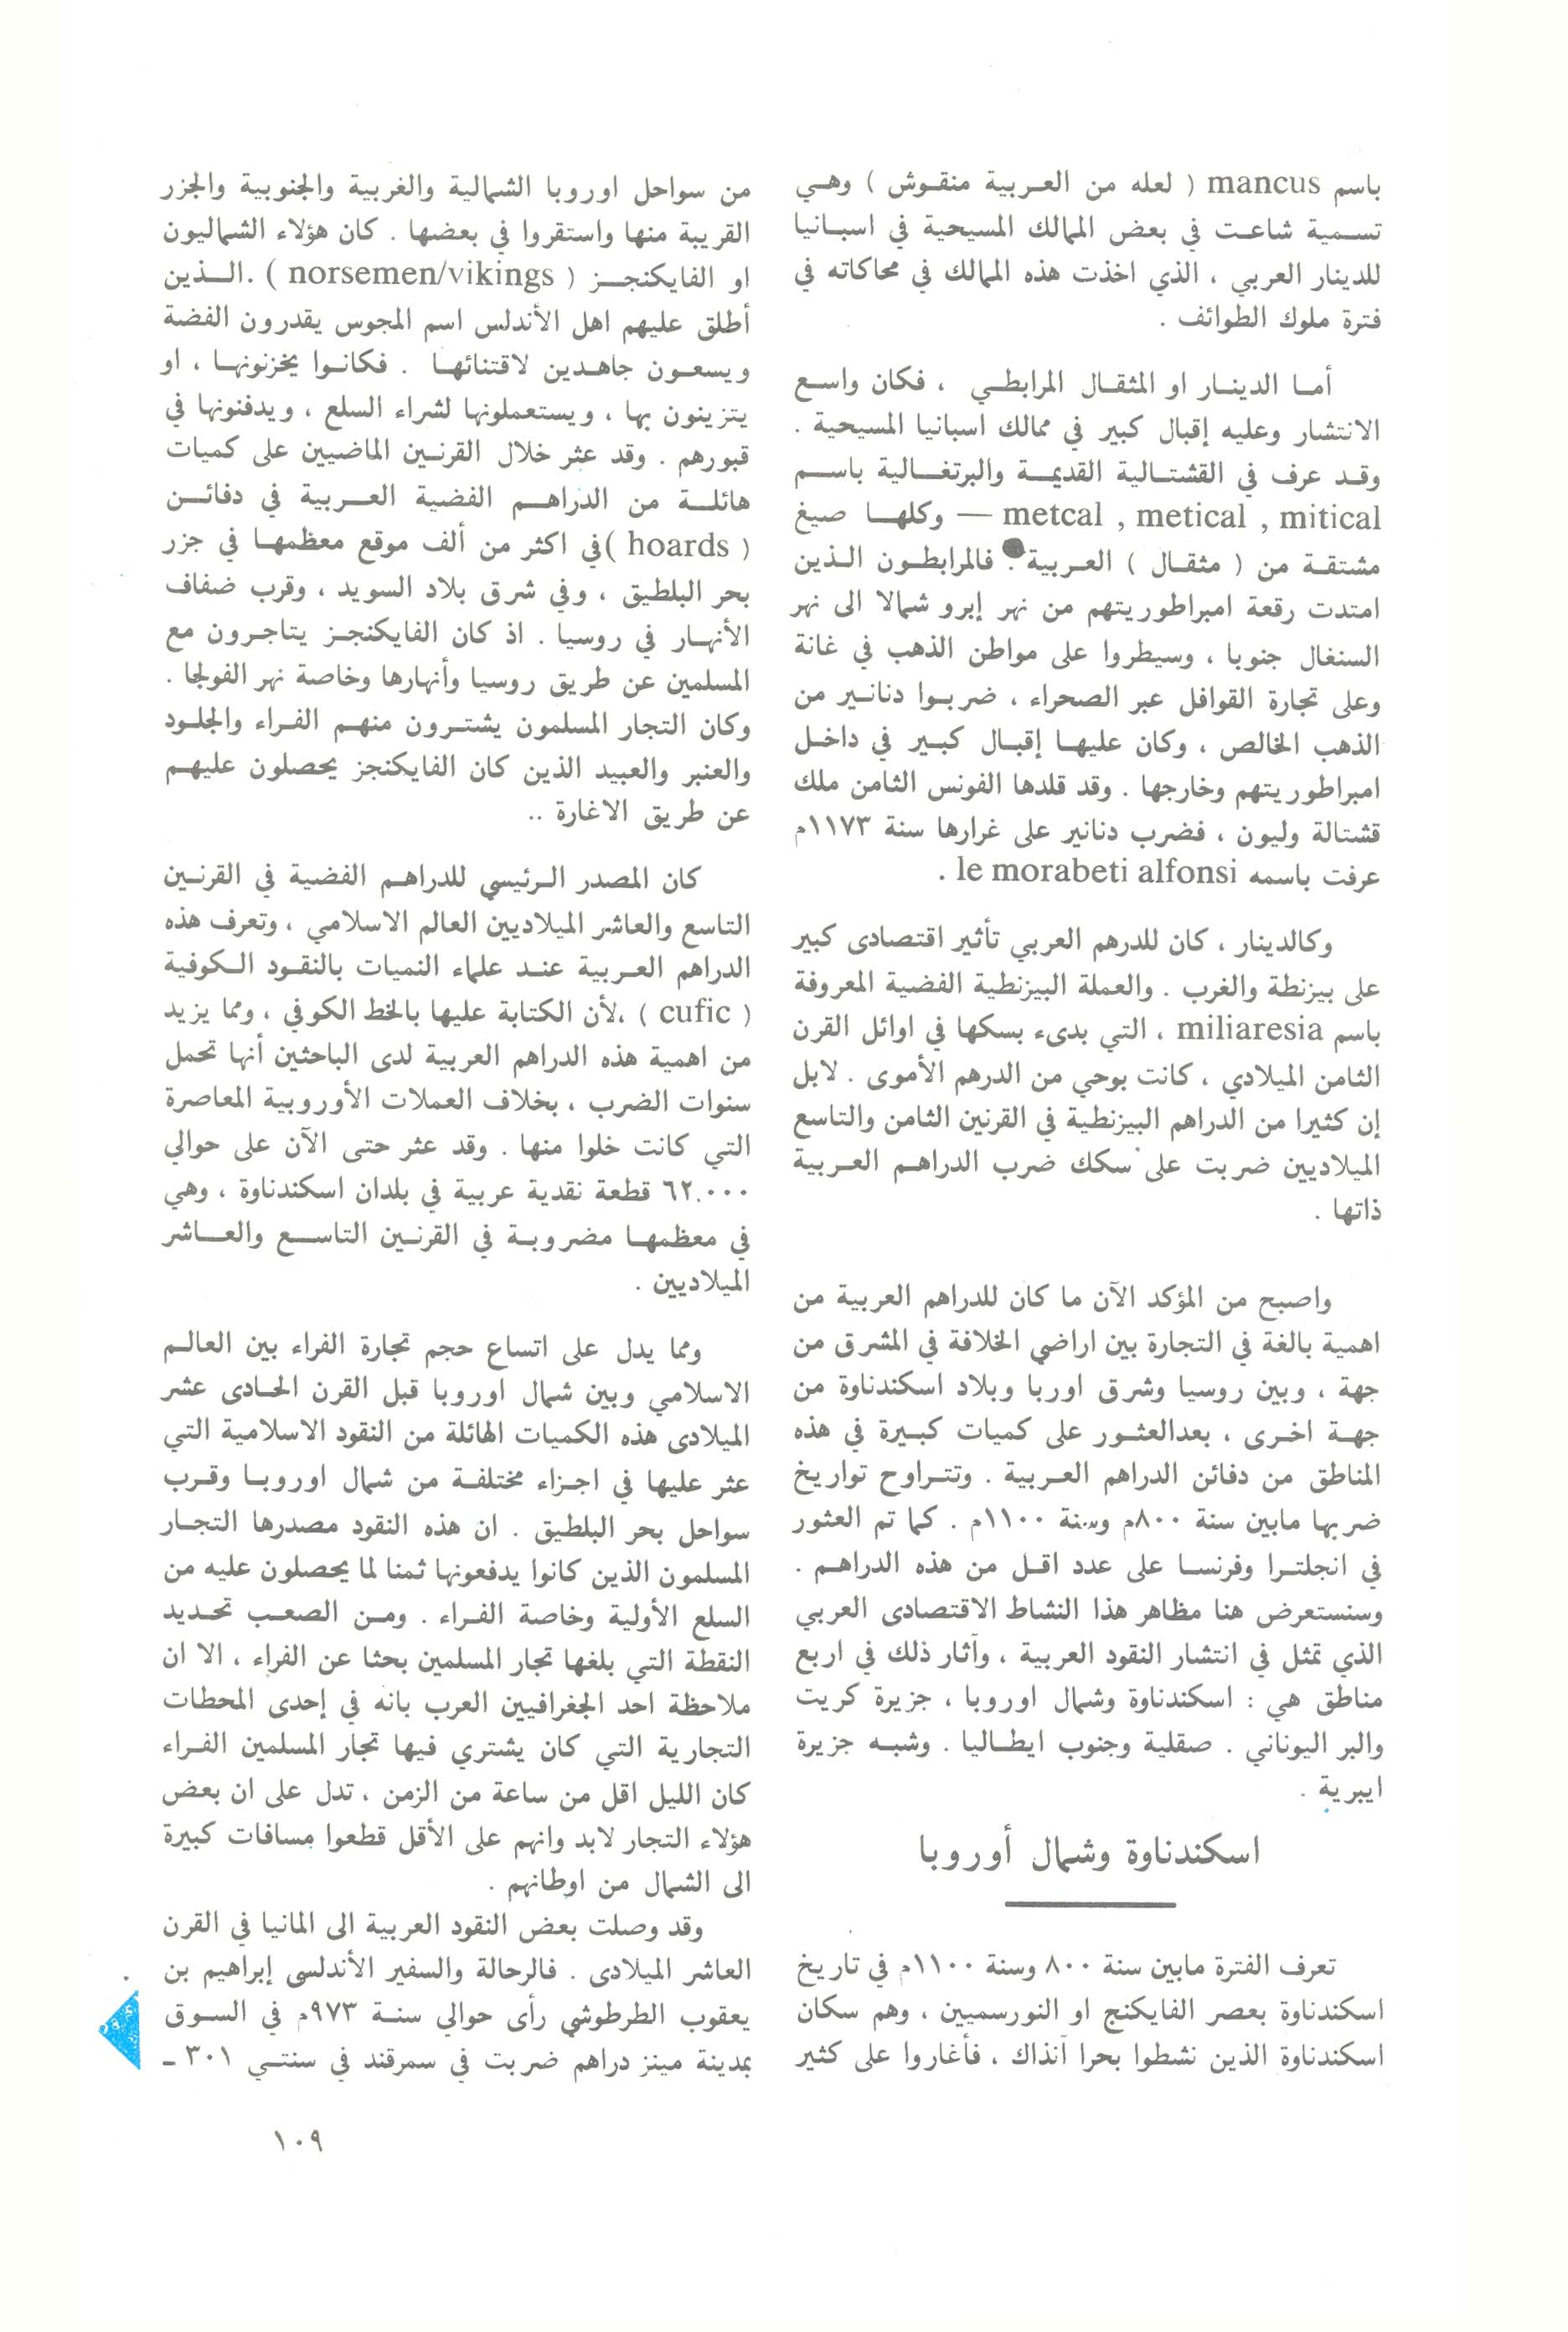 باسم mancus ( لعله من العربية منقوش ) وهي
تسمية شاعت في بعض الممالك المسيحية في اسبانيا
للدينار العربي ، الذي اخذت هذه الممالك في محاكاته في
فترة ملوك الطوائف .
أما الدينار او المثقال المرابطي ، فكان واسع
الانتشار وعليه إقبال كبير في ممالك اسبانيا المسيحية .
وقد عرف في القشتالية القديمة والبرتغالية باسم
metcal , metical , mitical — وكلها صيغ
مشتقة من ( مثقال ) العربية . فالمرابطون الذين
امتدت رقعة امبراطوريتهم من نهر إبرو شمالا الى نهر
السنغال جنوبا ، وسيطروا على مواطن الذهب في غانة
وعلى تجارة القوافل عبر الصحراء ، ضربوا دنانير من
الذهب الخالص ، وكان عليها إقبال كبير في داخل
امبراطوريتهم وخارجها . وقد قلدها الفونس الثامن ملك
قشتالة وليون ، فضرب دنانير على غرارها سنة ١١٧٣م
عرفت باسمه le morabeti alfonsi .
وكالدينار ، كان للدرهم العربي تأثير اقتصادى كبير
على بيزنطة والغرب . والعملة البيزنطية الفضية المعروفة
باسم miliaresia ، التي بدىء بسكها في اوائل القرن
الثامن الميلادي ، كانت بوحي من الدرهم الأموى . لابل
إن كثيرا من الدراهم البيزنطية في القرنين الثامن والتاسع
الميلاديين ضربت على سكك ضرب الدراهم العربية
ذاتها .
واصبح من المؤكد الآن ما كان للدراهم العربية من
اهمية بالغة في التجارة بين اراضي الخلافة في المشرق من
جهة ، وبين روسيا وشرق اوربا وبلاد اسكندناوة من
جهة اخرى ، بعدالعثور على كميات كبيرة في هذه
المناطق من دفائن الدراهم العربية . وتتراوح تواريخ
ضربها مابين سنة ٨٠٠م وسنة ١١٠٠م . كما تم العثور
في انجلترا وفرنسا على عدد اقل من هذه الدراهم .
وسنستعرض هنا مظاهر هذا النشاط الاقتصادى العربي
الذي تمثل في انتشار النقود العربية ، وآثار ذلك في اربع
مناطق هي : اسكندناوة وشمال اوروبا ، جزيرة كريت
والبر اليوناني . صقلية وجنوب ايطاليا . وشبه جزيرة
ايبرية .
اسكندناوة وشمال أوروبا
تعرف الفترة مابين سنة ٨٠٠ وسنة ١١٠٠م في تاريخ
اسكندناوة بعصر الفايكنج او النورسميين ، وهم سكان
اسكندناوة الذين نشطوا بحرا آنذاك ، فأغاروا على كثير
من سواحل اوروبا الشمالية والغربية والجنوبية والجزر
القريبة منها واستقروا في بعضها . كان هؤلاء الشماليون
او الفايكنجز ( norsemen/vikings ) .الذين
أطلق عليهم اهل الأندلس اسم المجوس يقدرون الفضة
ويسعون جاهدين لاقتنائها . فكانوا يخزنونها ، او
يتزينون بها ، ويستعملونها لشراء السلع ، ويدفنونها في
قبورهم . وقد عثر خلال القرنين الماضيين على كميات
هائلة من الدراهم الفضية العربية في دفائن
( hoards )في اكثر من ألف موقع معظمها في جزر
بحر البلطيق ، وفي شرق بلاد السويد ، وقرب ضفاف
الأنهار في روسيا . اذ كان الفايكنجز يتاجرون مع
المسلمين عن طريق روسيا وأنهارها وخاصة نهر الفولجا .
وكان التجار المسلمون يشترون منهم الفراء والجلود
والعنبر والعبيد الذين كان الفايكنجز يحصلون عليهم
عن طريق الاغارة ..
كان المصدر الرئيسي للدراهم الفضية في القرنين
التاسع والعاشر الميلاديين العالم الاسلامي ، وتعرف هذه
الدراهم العربية عند علماء النميات بالنقود الكوفية
( cufic ) ،لأن الكتابة عليها بالخط الكوفي ، ومما يزيد
من اهمية هذه الدراهم العربية لدى الباحثين أنها تحمل
سنوات الضرب ، بخلاف العملات الأوروبية المعاصرة
التي كانت خلوا منها . وقد عثر حتى الآن على حوالي
٦٢,٠٠٠ قطعة نقدية عربية في بلدان اسكندناوة ، وهي
في معظمها مضروبة في القرنين التاسع والعاشر
الميلاديين .
ومما يدل على اتساع حجم تجارة الفراء بين العالم
الاسلامي وبين شمال اوروبا قبل القرن الحادى عشر
الميلادى هذه الكميات الهائلة من النقود الاسلامية التي
عثر عليها في اجزاء مختلفة من شمال اوروبا وقرب
سواحل بحر البلطيق . ان هذه النقود مصدرها التجار
المسلمون الذين كانوا يدفعونها ثمنا لما يحصلون عليه من
السلع الأولية وخاصة الفراء . ومن الصعب تحديد
النقطة التي بلغها تجار المسلمين بحثا عن الفراء ، الا ان
ملاحظة احد الجغرافيين العرب بانه في إحدى المحطات
التجارية التي كان يشتري فيها تجار المسلمين الفراء
كان الليل اقل من ساعة من الزمن ، تدل على ان بعض
هؤلاء التجار لابد وانهم على الأقل قطعوا مسافات كبيرة
الى الشمال من اوطانهم .
وقد وصلت بعض النقود العربية الى المانيا في القرن
العاشر الميلادى . فالرحالة والسفير الأندلسي إبراهيم بن
يعقوب الطرطوشي رأى حوالي سنة ٩٧٣م في السوق
بمدينة مينز دراهم ضربت في سمرقند في سنتي ٣٠١ ـ
١٠٩